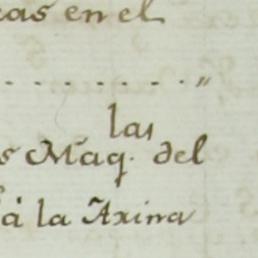 cas en el
las
s Maq. del
à la Axina